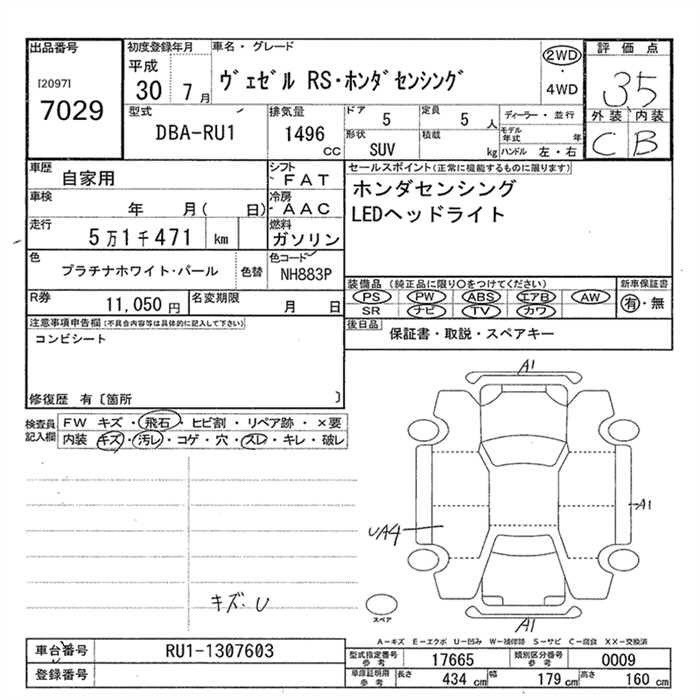 出品番号
[2097]
7029
初度登録年月
平成
30 7 月
車名・グレード
ヴェゼル RS・ホンダセンシング
2WD
・
4WD
評価点
35
外装 内装
C B
型式
DBA-RU1
排気量
1496
CC
ドア
5
定員
5 人
ディーラー・並行
形状
SUV
積載
kg
モデル年式 年
ハンドル 左・右
車歴
自家用
シフト
FAT
車検
年 月( 日)
冷房
AAC
走行
5万1千471 km
燃料
ガソリン
色
プラチナホワイト・パール
色替
色コード
NH883P
R券
11,050 円
名変期限
月 日
セールスポイント(正常に機能するものに限ります)
ホンダセンシング
LEDヘッドライト
装備品(純正品に限り○をつけてください)
PS PW ABS エアB AW
SR ナビ TV カワ
新車保証書
有・無
後日品
保証書・取説・スペアキー
注意事項申告欄(不具合内容等は具体的に記入して下さい)
コンビシート
修復歴 有〔箇所 〕
検査員
記入欄
FW キズ・飛石・ヒビ割・リペア跡・×要
内装 キズ・汚レ・コゲ・穴・スレ・キレ・破レ
キズ・U
A1
A1
UA4
A1
スペア
A-キズ E-エクボ U-凹み W-補修跡 S-サビ C-腐食 XX-交換済
車台番号
RU1-1307603
登録番号
型式指定番号
参考
17665
類別区分番号
参考
0009
車庫証明用
参考
長さ 434 cm 幅 179 cm 高さ 160 cm